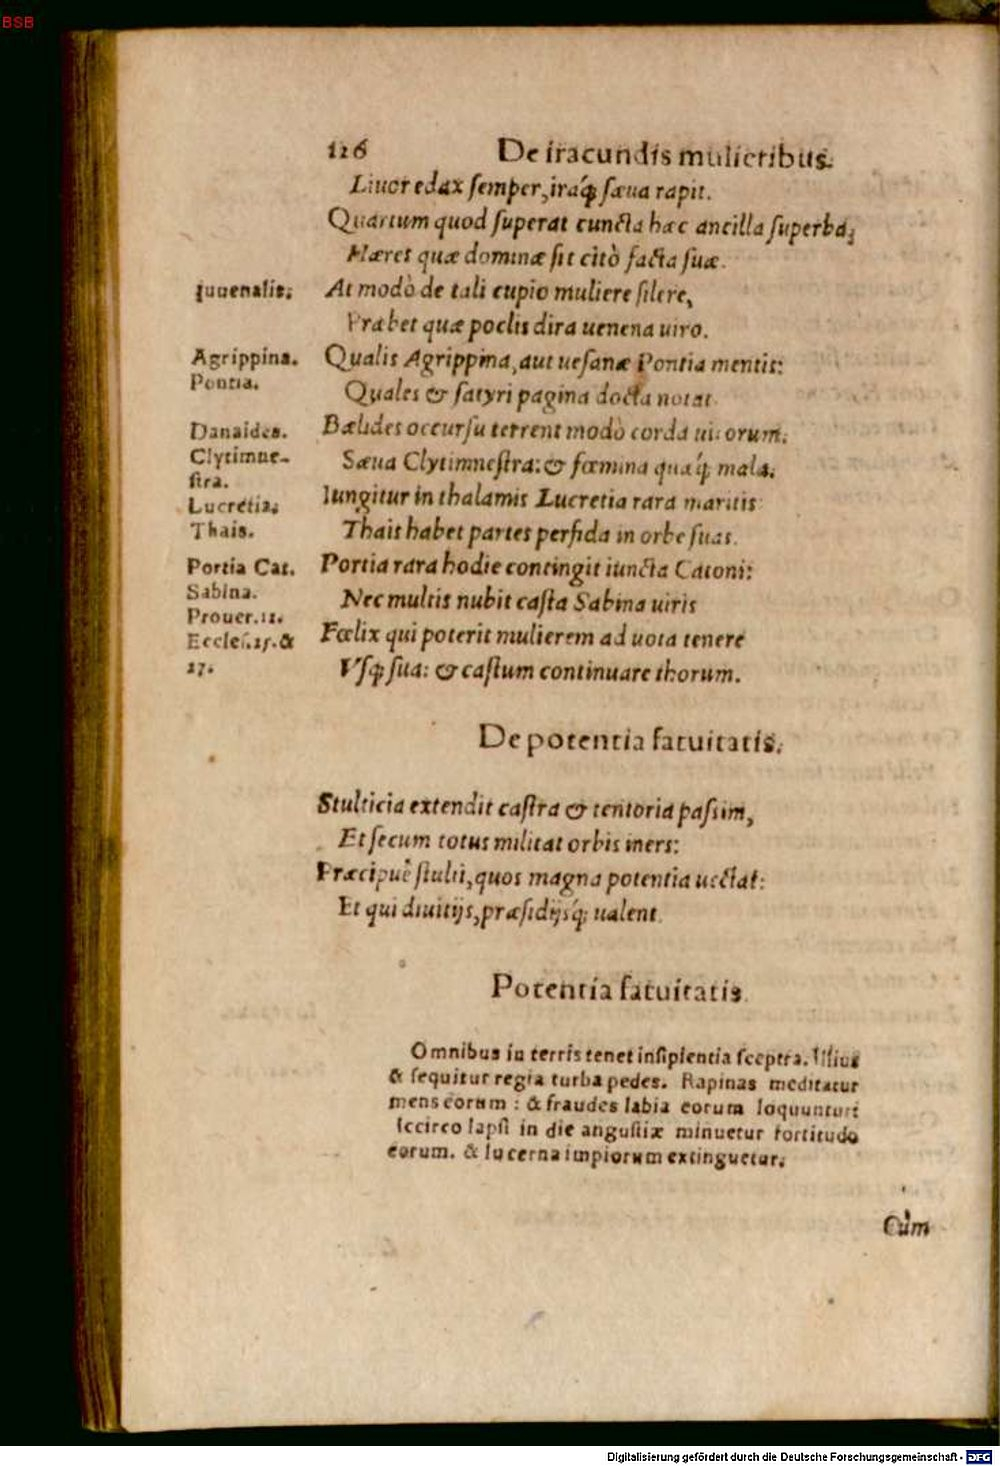 BSB
126 De iracundis mulieribus.
Liuor edax semper, iraq́; sæua rapit.
Quartum quod superat cuncta hæc ancilla superba,
Hæres quæ dominæ sit citò facta suæ.
Iuuenalis. At modò de tali cupio muliere silere,
Præbet quæ poclis dira uenena uiro.
Agrippina. Qualis Agrippina, aut uesanæ Pontia mentis:
Pontia. Quales & satyri pagina docta notat.
Danaides. Bælides occursu terrent modò corda uirorum.
Clytimne-
stra. Sæua Clytimnestra: & fœmina quæq́; mala.
Lucretia. Iungitur in thalamis Lucretia rara maritis
Thais. Thais habet partes perfida in orbe suas.
Portia Cat. Portia rara hodie contingit iuncta Catoni:
Sabina. Nec multis nubit casta Sabina uiris
Prouer. 12.
Eccles. 25. & Fœlix qui poterit mulierem ad uota tenere
27. Vsq; sua: & castum continuare thorum.
De potentia fatuitatis.
Stulticia extendit castra & tentoria passim,
Et secum totus militat orbis iners:
Præcipuè stulti, quos magna potentia uectat:
Et qui diuitijs, præsidijsq́; ualent.
Potentia fatuitatis.
Omnibus in terris tenet insipientia sceptra. Illius
& sequitur regia turba pedes. Rapinas meditatur
mens eorum: & fraudes labia eorum loquuntur:
Iccirco lapsi in die angustiæ minuetur fortitudo
eorum. & lucerna impiorum extinguetur.
Cùm
Digitalisierung gefördert durch die Deutsche Forschungsgemeinschaft - DFG